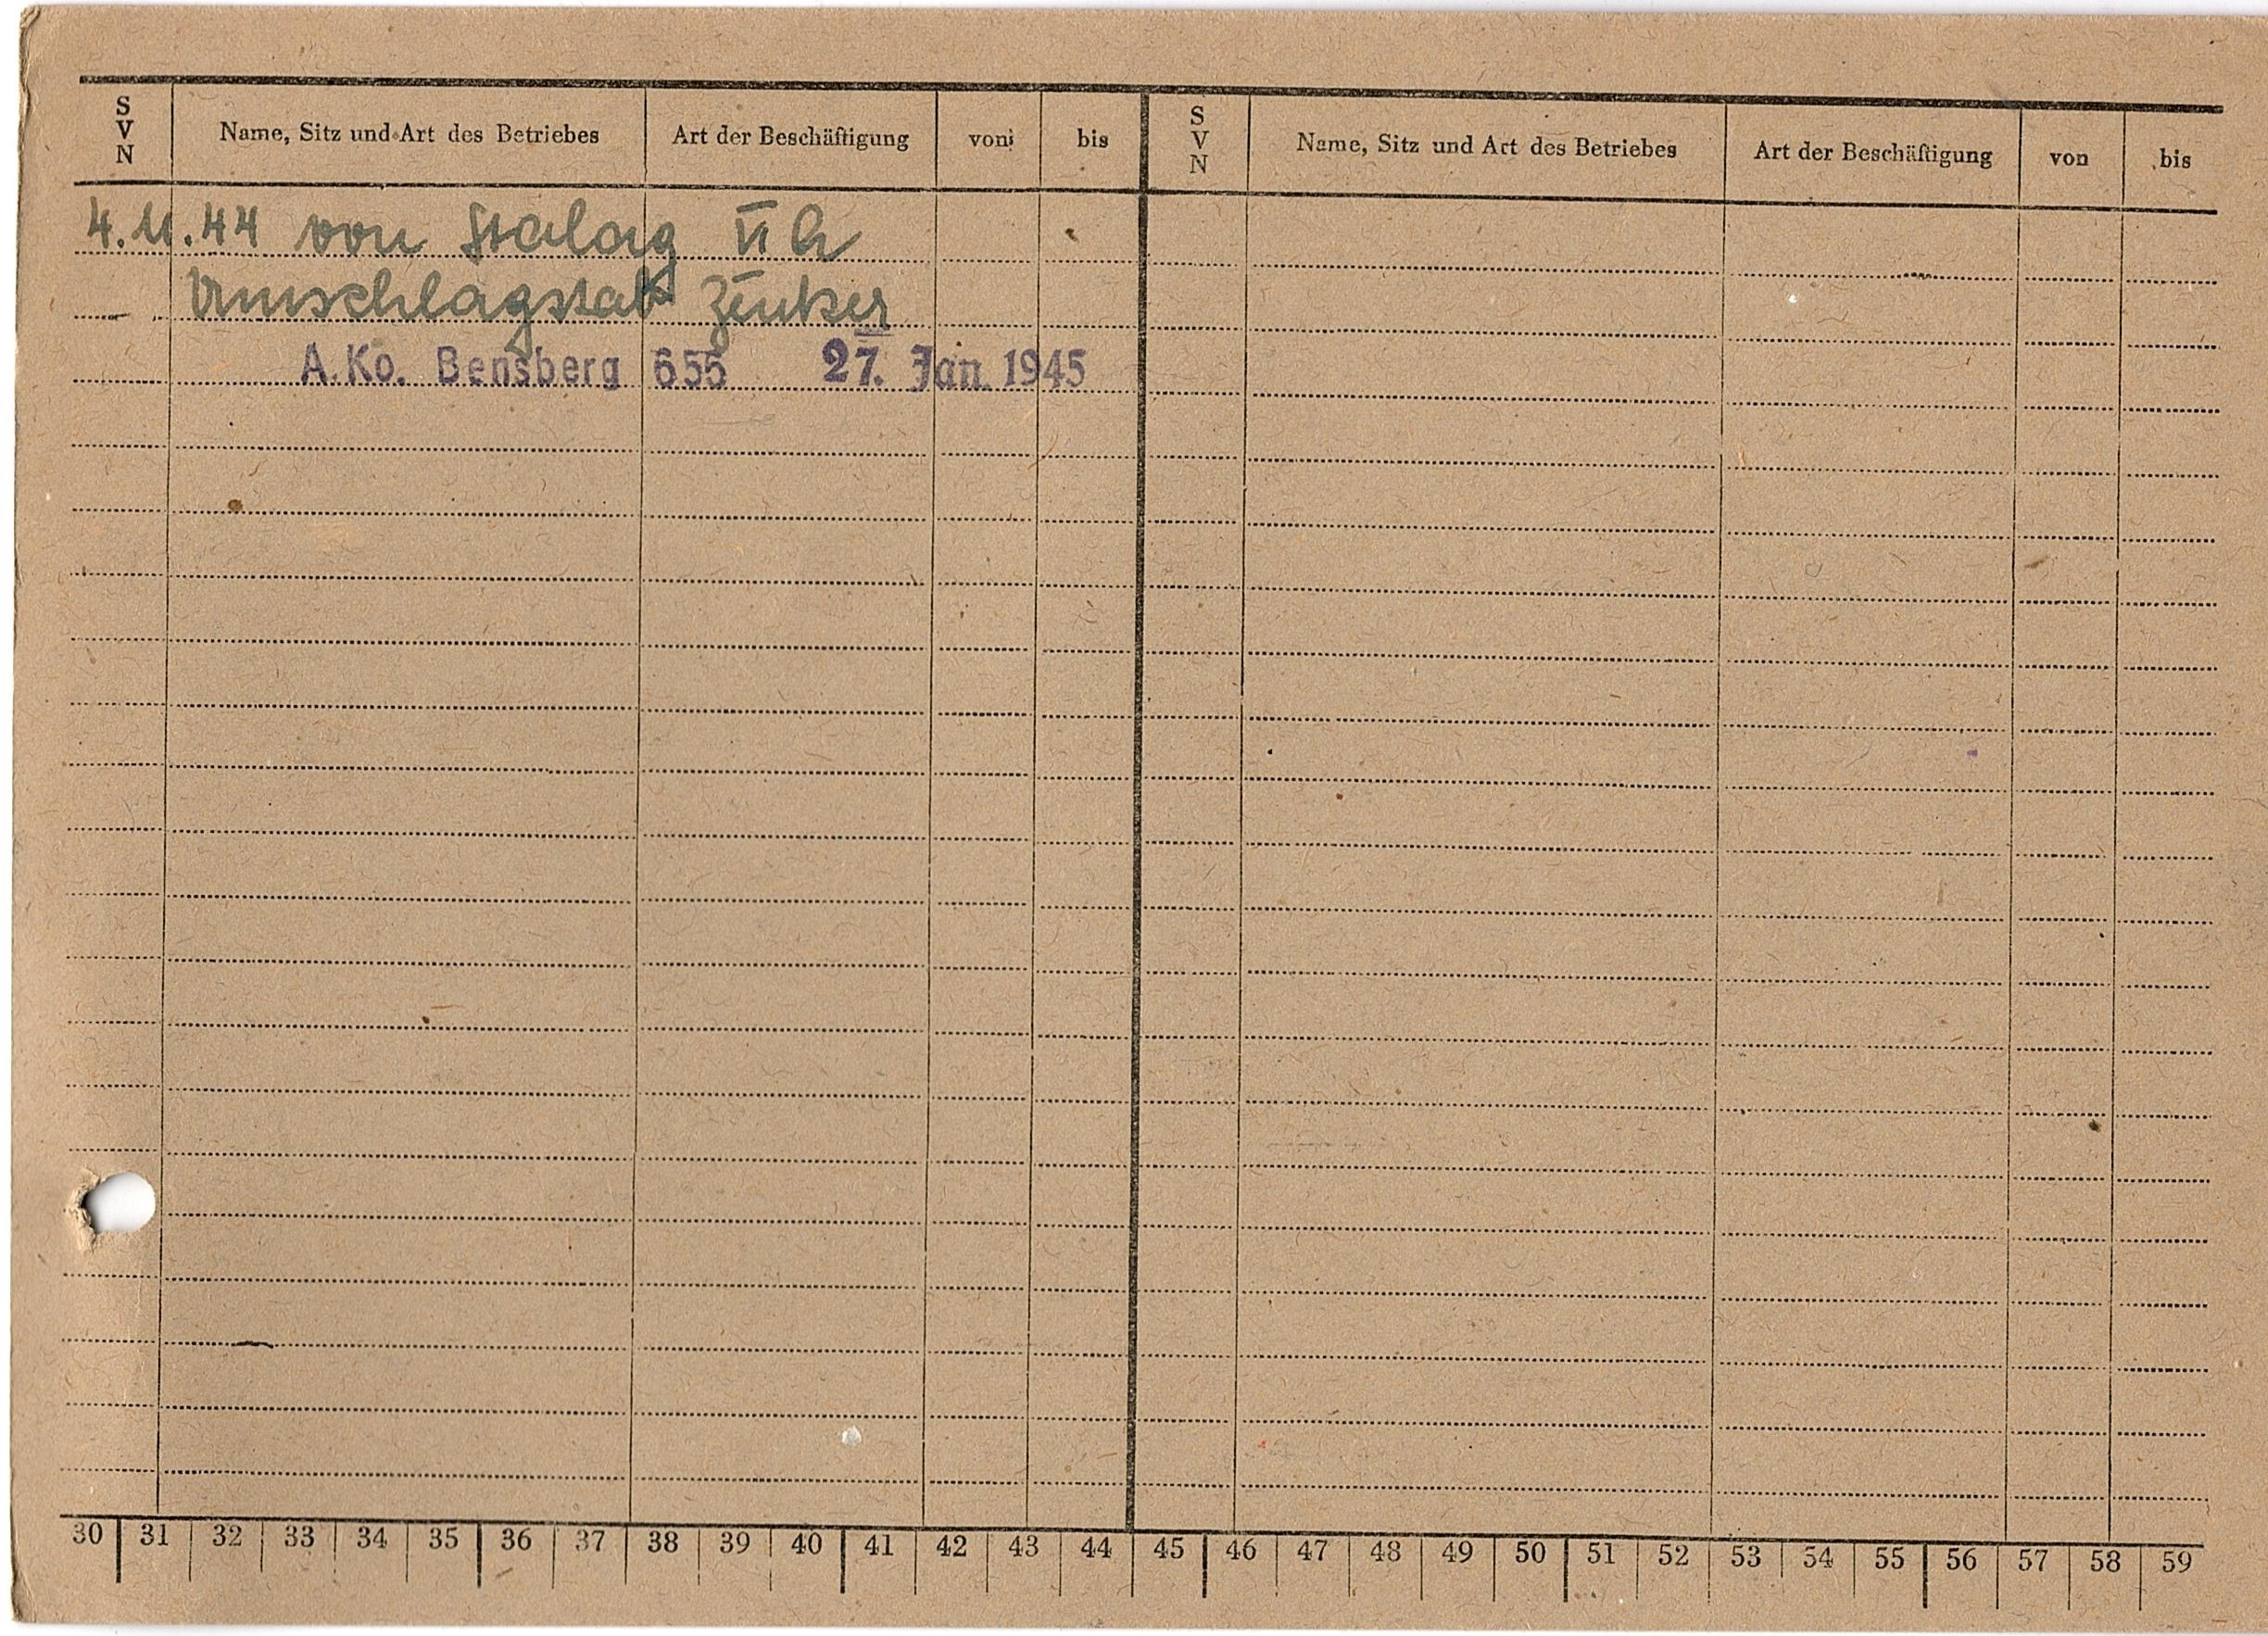 S V N Name, Sitz und Art des Betriebes Art der Beschäftigung von bis S V N Name, Sitz und Art des Betriebes Art der Beschäftigung von bis
4.11.44 von Stalag
Umschlagstab Zenker
A.Ko. Bensberg 655 27. Jan 1945
30 31 32 33 34 35 36 37 38 39 40 41 42 43 44 45 46 47 48 49 50 51 52 53 54 55 56 57 58 59